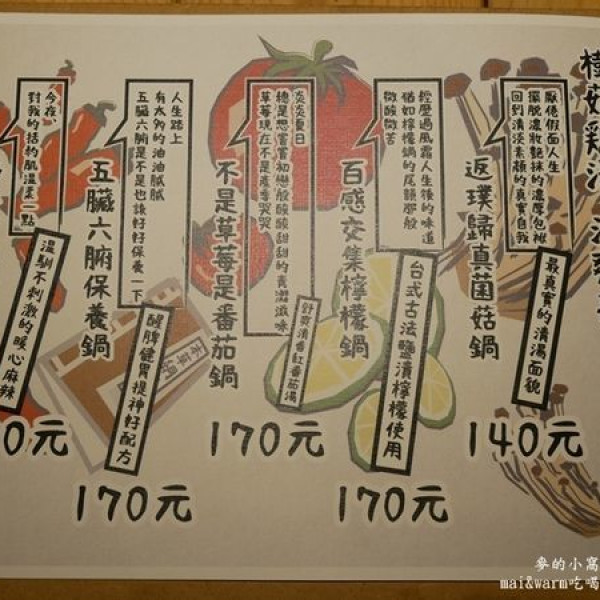 菇雞汁
厭倦假面人生
擺脫濃妝艷抹的濃厚包袱
回到清淡素顏的真實自我
返璞歸真菌菇鍋
最真實的清湯面貌
140元
經歷過風霜人生後的味道
猶如檸檬鍋的尾韻那般
微酸微苦
百感交集檸檬鍋
台式古法鹽漬檸檬使用
170元
炎炎夏日
總是想嘗嘗初戀般酸酸甜甜的青澀滋味
草莓現在不是產季哭哭
不是草莓是番茄鍋
舒爽清香紅番茄湯
170元
人生路上
有太多的油油膩膩
五臟六腑是不是也該好好保養一下
五臟六腑保養鍋
醒脾健胃提神好配方
本草綱
170元
今夜
對我的括約肌溫柔一點
溫馴不刺激的暖心麻辣
0元
麥的小窩
mai&warm吃喝